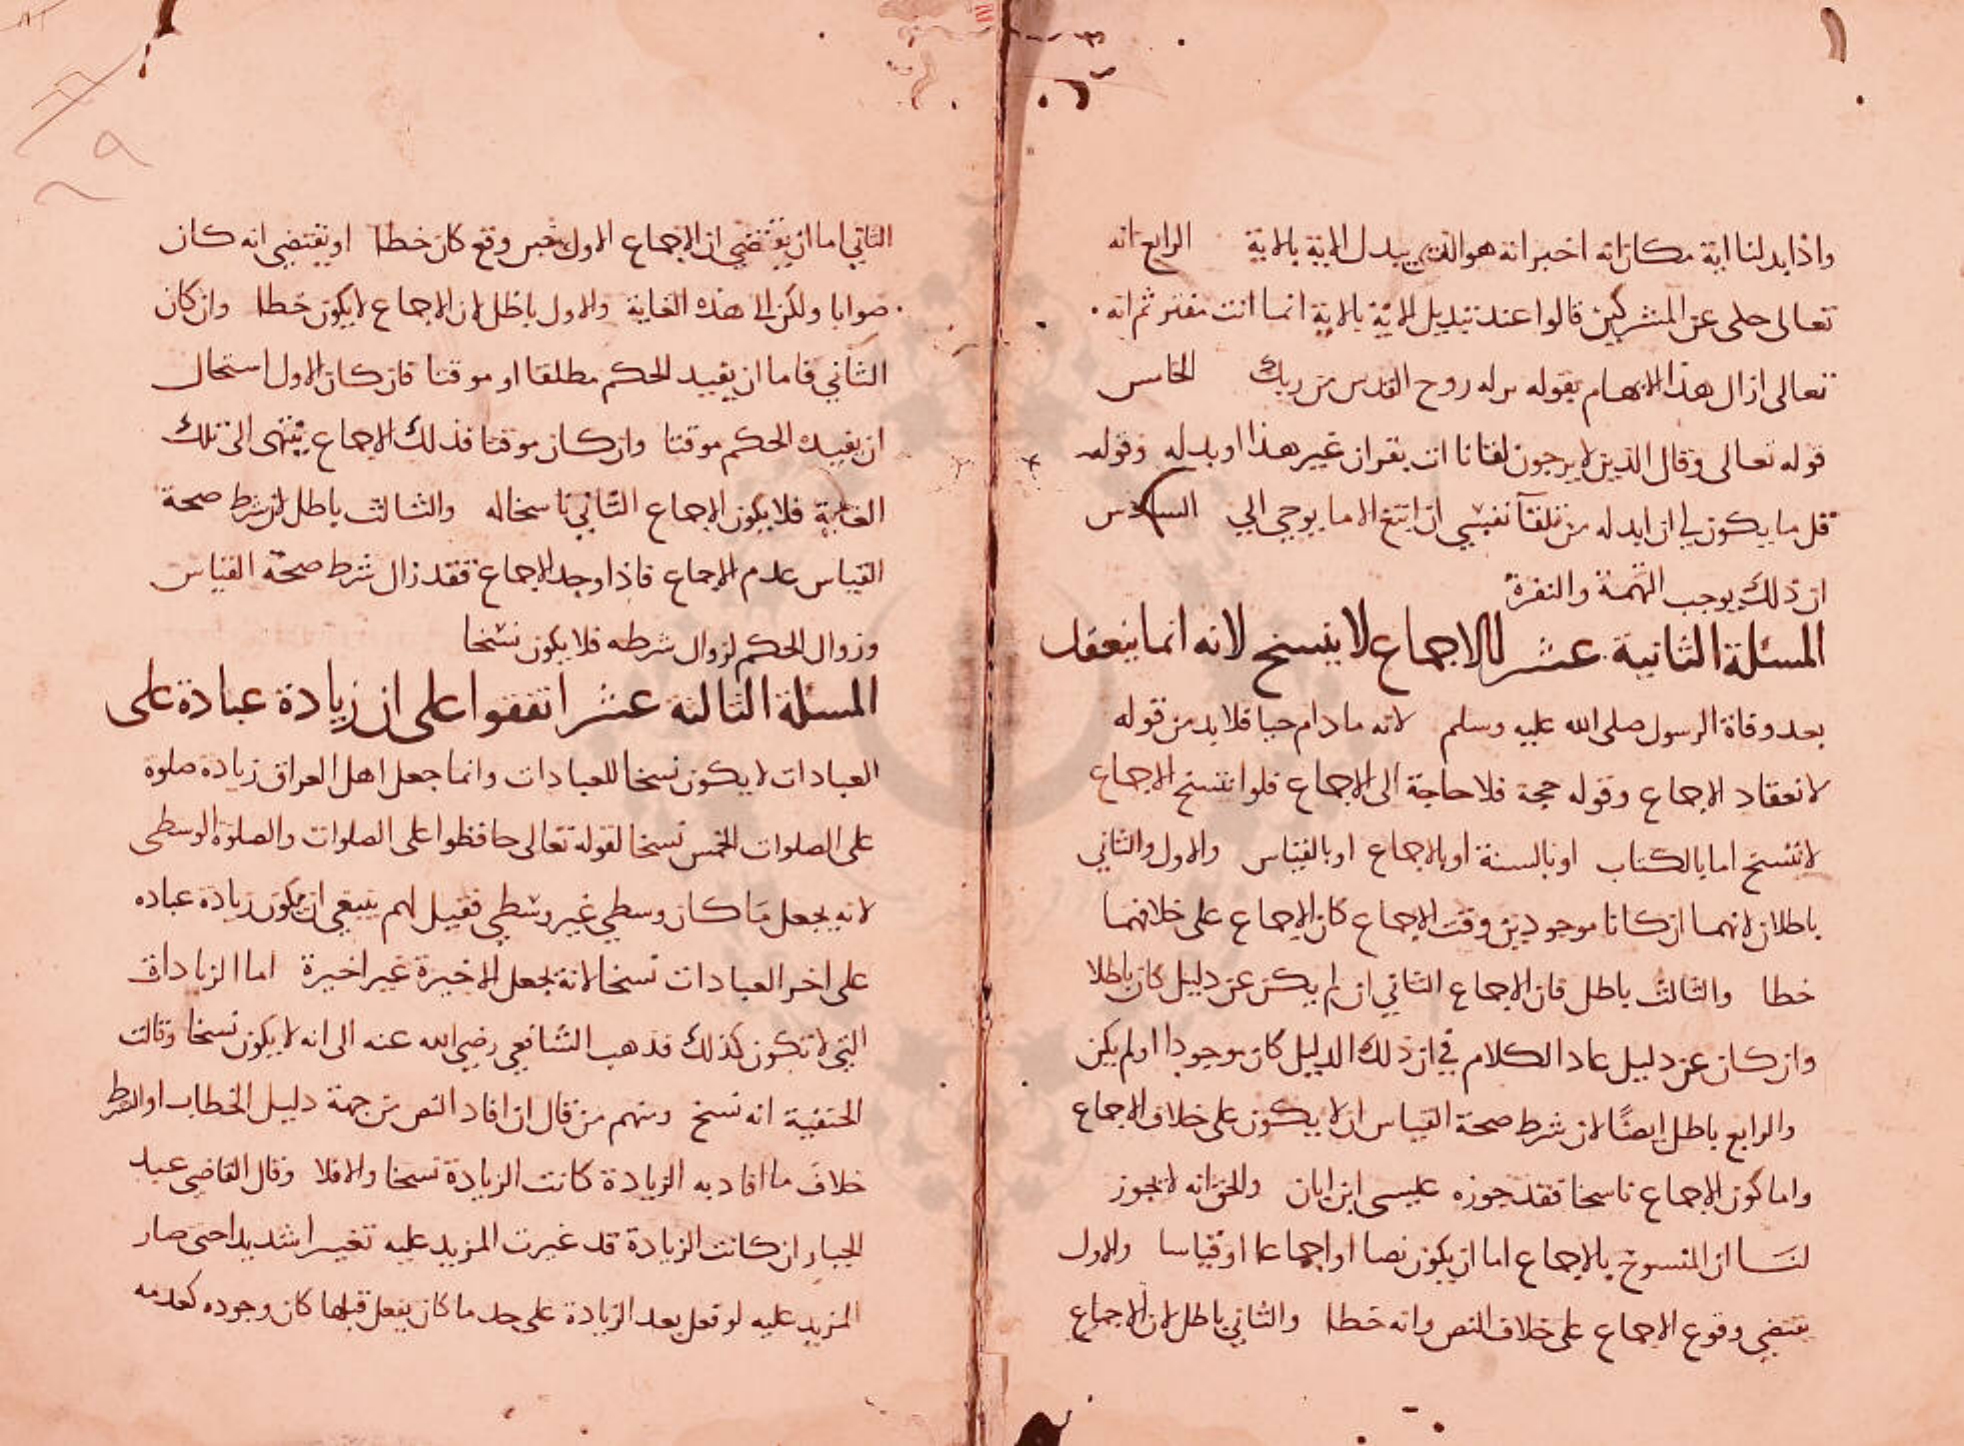 واذا بدلنا اية مكان اية اخبر انه هو الذي يبدل الاية بالاية الرابع انه
تعالى حكى عن المشركين قالوا عند تبديل الاية بالاية انما انت مفتر ثم انه
تعالى ازال هذا الايهام بقوله نزله روح القدس من ربك الخامس
قوله تعالى وقال الذين لا يرجون لقانا ائت بقران غير هذا او بدله وقوله
قل ما يكون لي ان ابدله من تلقآ نفسي ان اتبع الا ما يوحي الي السادس
ان ذلك يوجب التهمة والنفرة
المسئلة الثانية عشر الاجماع لا ينسخ لانه انما ينعقد
بعد وفاة الرسول صلى الله عليه وسلم لانه ما دام حيا فلا بد من قوله
لانعقاد الاجماع وقوله حجة فلا حاجة الى الاجماع فلو انتسخ الاجماع
لانتسخ اما بالكتاب او بالسنة او بالاجماع او بالقياس والاول والثاني
باطلان لانهما ان كانا موجودين وقت الاجماع كان الاجماع على خلافهما
خطا والثالث باطل فان الاجماع الثاني ان لم يكن عن دليل كان باطلا
وان كان عن دليل عاد الكلام في ان ذلك الدليل كان موجودا او لم يكن
والرابع باطل ايضًا لان شرط صحة القياس ان لا يكون على خلاف الاجماع
واما كون الاجماع ناسخا فقد جوزه عيسى ابن ابان والحق انه لا يجوز
لنا ان المنسوخ بالاجماع اما ان يكون نصا او اجماعا او قياسا والاول
يقتضي وقوع الاجماع على خلاف النص وانه خطا والثاني باطل لان الاجماع
الثاني اما ان يقتضي ان الاجماع الاول حين وقع كان خطا او يقتضي انه كان
صوابا ولكن الى هذه الغاية والاول باطل لان الاجماع لا يكون خطا وان كان
الثاني فاما ان يفيد الحكم مطلقا او موقتا فان كان الاول استحال
ان يفيده الحكم موقتا وان كان موقتا فذلك الاجماع ينتهي الى تلك
الغاية فلا يكون الاجماع الثاني ناسخا له والثالث باطل لان شرط صحة
القياس عدم الاجماع فاذا وجد الاجماع فقد زال شرط صحة القياس
وزوال الحكم لزوال شرطه فلا يكون نسخا
المسئلة الثالثه عشر اتفقوا على ان زيادة عبادة على
العبادات لا يكون نسخا للعبادات وانما جعل اهل العراق زيادة صلوة
على الصلوات الخمس نسخا لقوله تعالى حافظوا على الصلوات والصلوة الوسطى
لانه يجعل ما كان وسطي غير وسطي فقيل لهم ينبغي ان يكون زيادة عباده
على اخر العبادات نسخا لانه يجعل الاخيرة غير اخيرة اما الزيادات
التي لا تكون كذلك فذهب الشافعي رضي الله عنه الى انه لا يكون نسخا وقالت
الحنفية انه نسخ ومنهم من قال ان افاد النص من جهة دليل الخطاب او الشرط
خلاف ما افاد به الزيادة كانت الزيادة نسخا والا فلا وقال القاضي عبد
الجبار ان كانت الزيادة قد غيرت المزيد عليه تغييرا شديدا حتى صار
المزيد عليه لو فعل بعد الزيادة على حد ما كان يفعل قبلها كان وجوده كعدمه